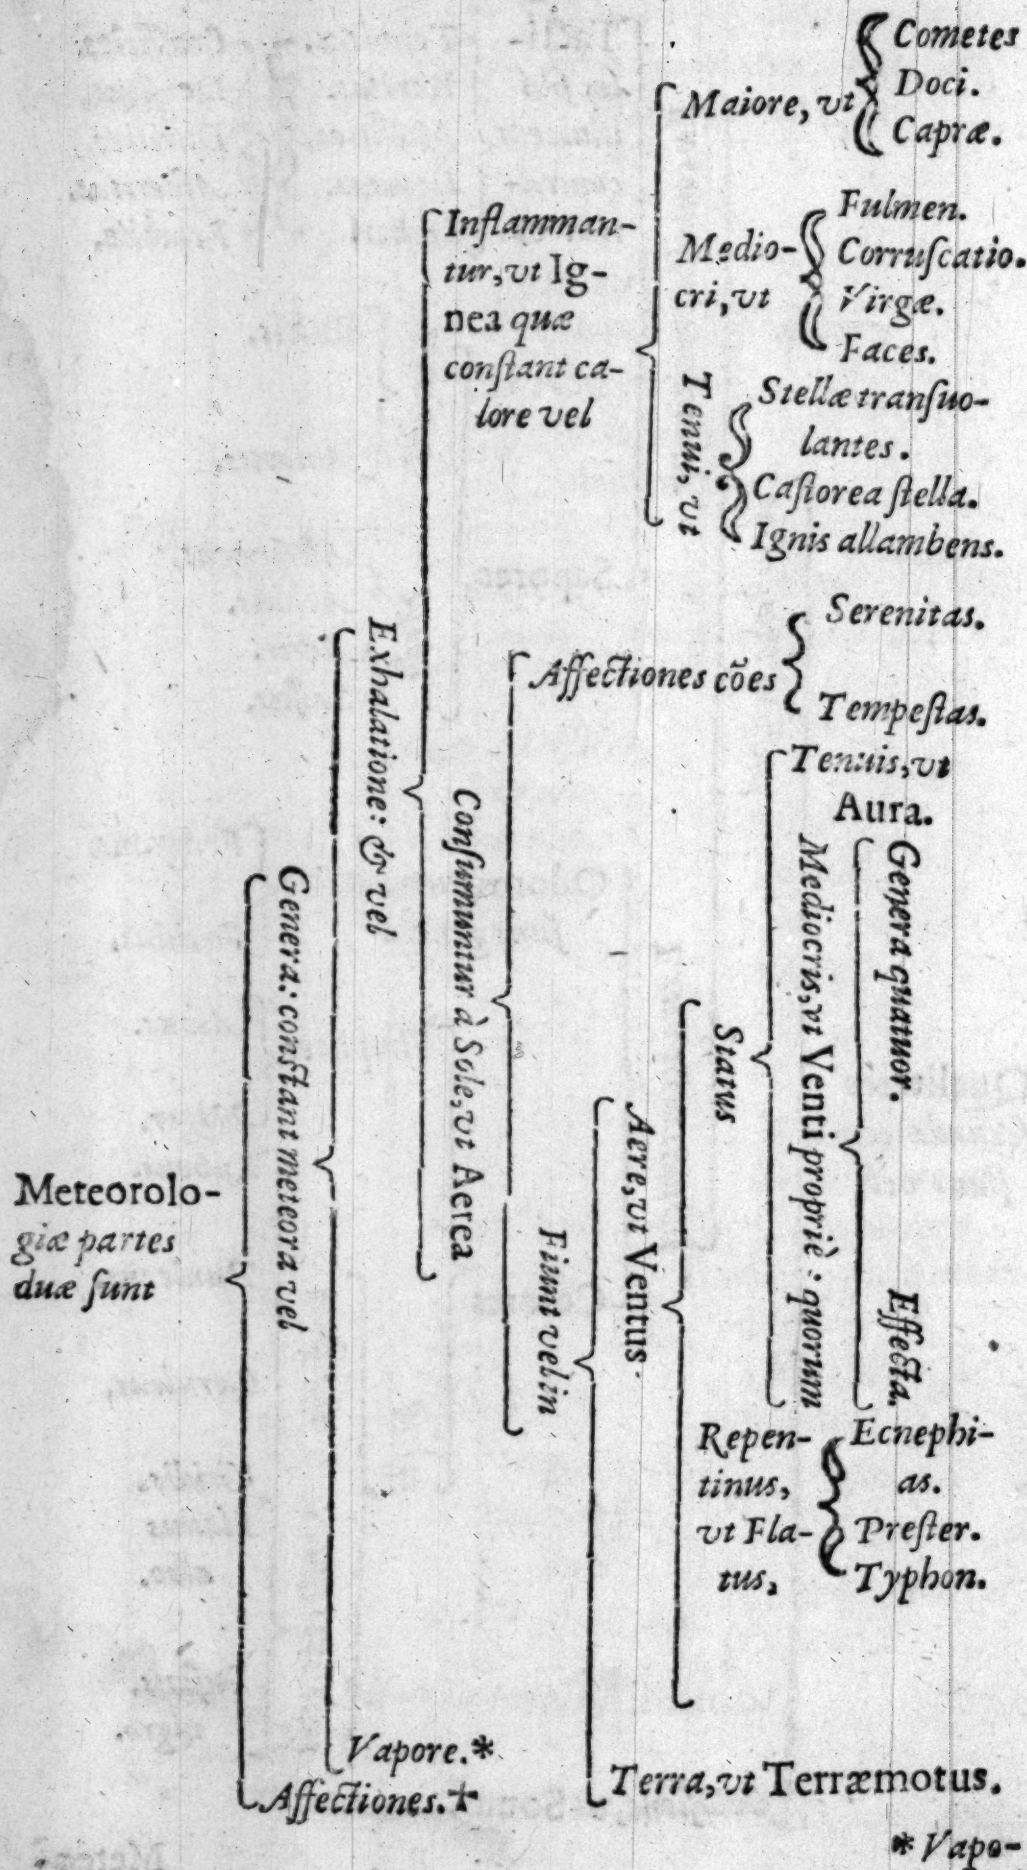 Meteorolo-
giæ partes
duæ ſunt
Genera: conſtant meteora vel
Exhalatione: & vel
Inflamman-
tur, vt Ig-
nea quæ
conſtant ca-
lore vel
Maiore, vt
Cometes
Doci.
Capræ.
Medio-
cri, vt
Fulmen.
Corruſcatio.
Virgæ.
Faces.
Tenui, vt
Stellæ tranſuo-
lantes.
Caſtorea ſtella.
Ignis allambens.
Conſumuntur à Sole, vt Aerea
Affectiones cões
Serenitas.
Tempeſtas.
Fiunt vel in
Aere, vt Ventus.
Status
Tenuis, vt
Aura.
Mediocris, vt Venti propriè: quorum
Genera quatuor.
Effecta.
Repen-
tinus,
vt Fla-
tus,
Ecnephi-
as.
Preſter.
Typhon.
Terra, vt Terræmotus.
Vapore.*
Affectiones.+
* Vapo-